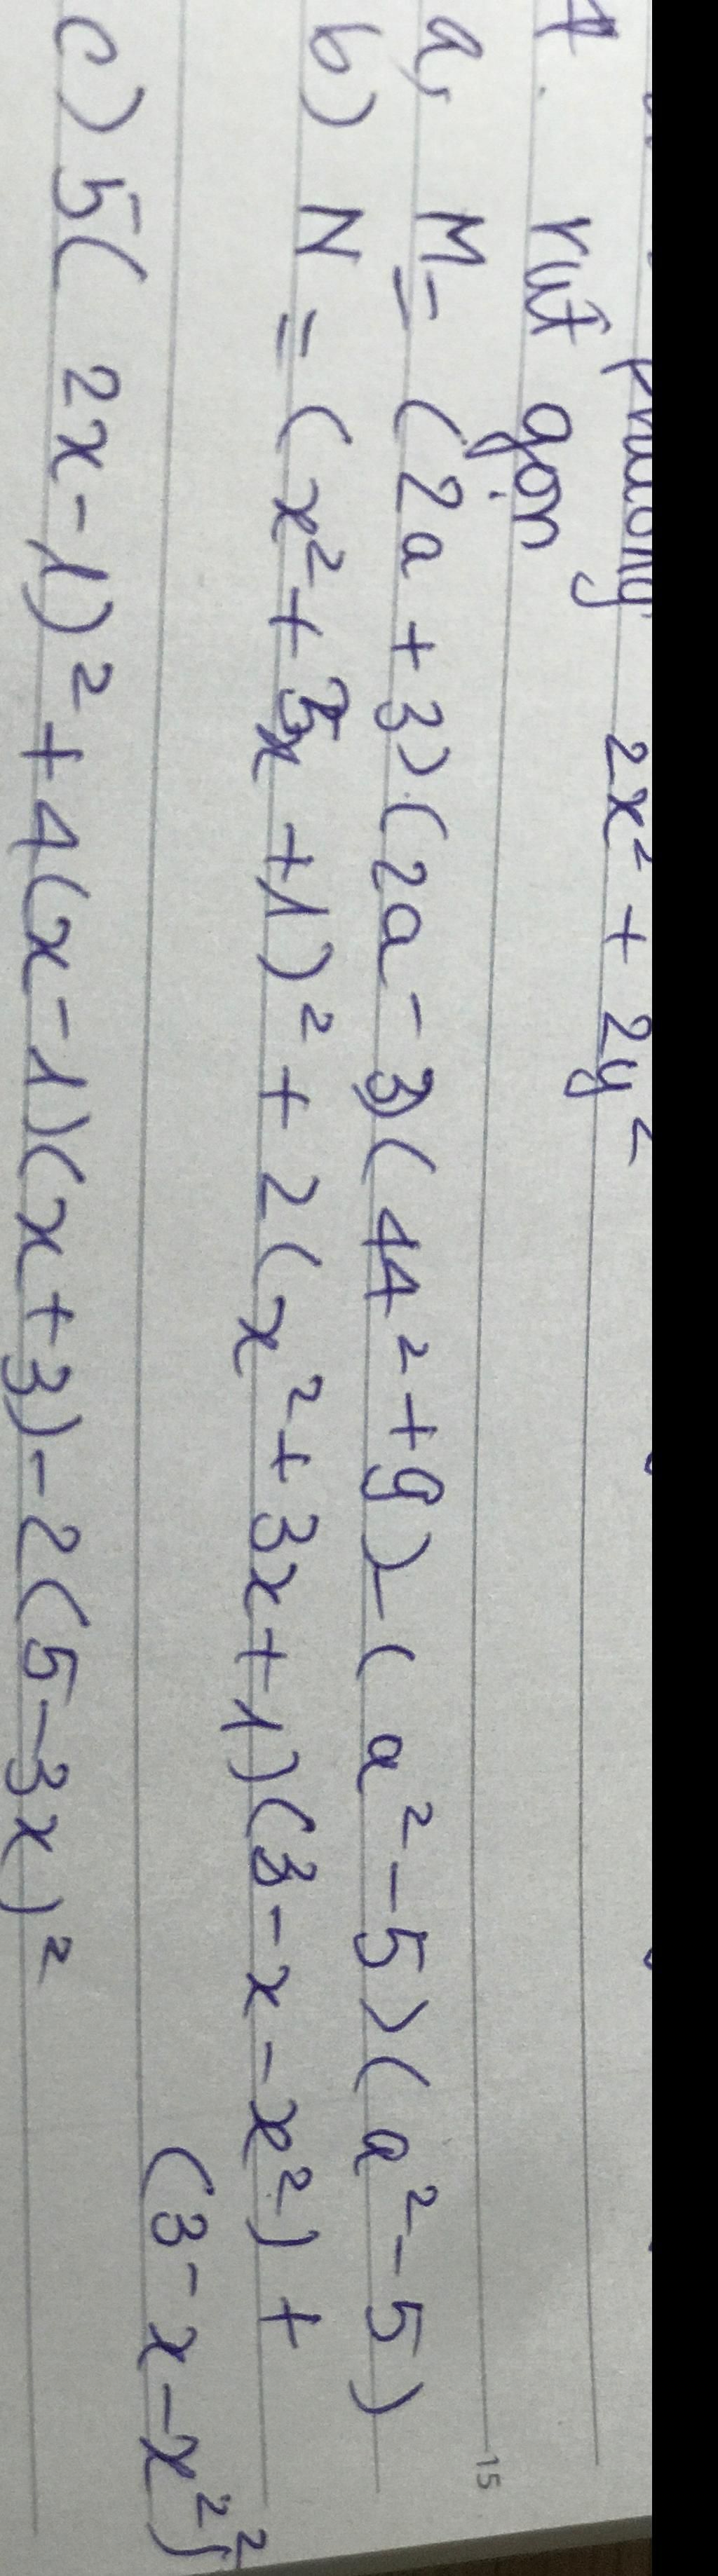 phương 2x² + 2y²
7. rút gọn
a, M = (2a + 3)(2a - 3)(4a² + 9) - (a² - 5)(a² - 5)
b) N = (x² + 3x + 1)² + 2(x² + 3x + 1)(3 - x - x²) +
(3 - x - x²)²
c) 5(2x - 1)² + 4(x - 1)(x + 3) - 2(5 - 3x)²
15